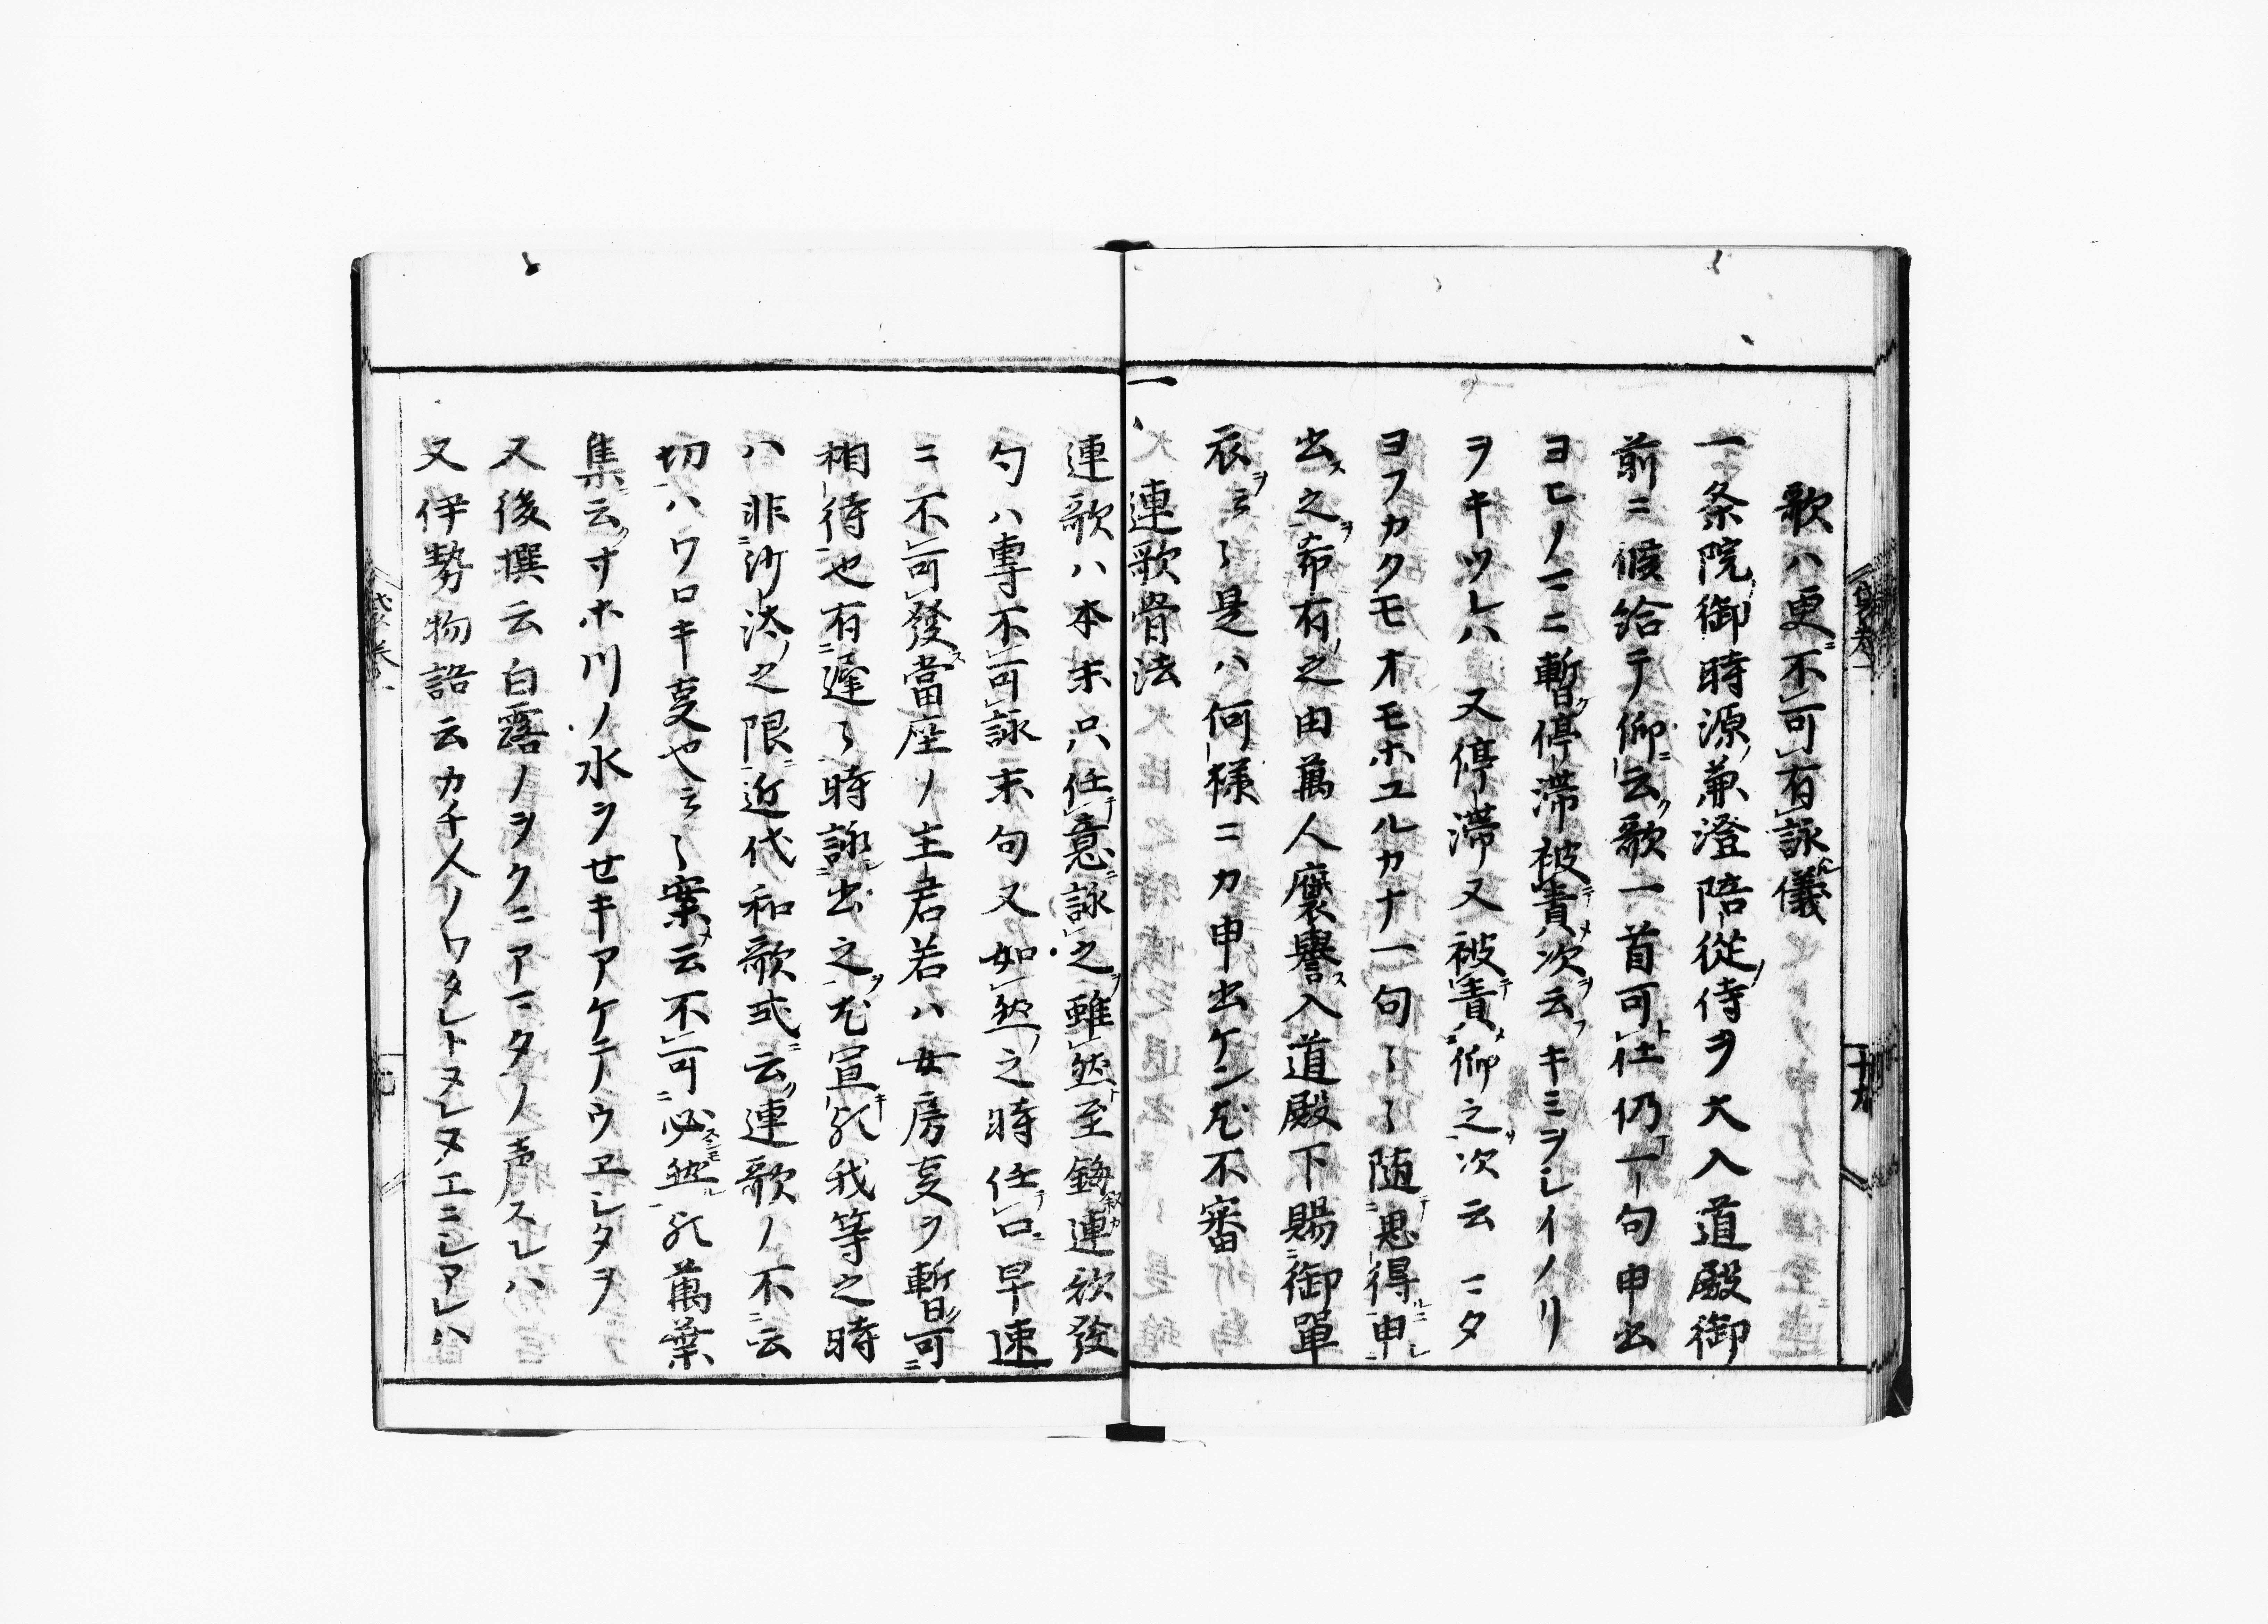 歌ハ更不可有詠儀
一条院御時源兼澄陪従侍ヲ大入道殿御
前ニ候給テ仰云歌一首可仕仍一句申出
ヨヒノマニ暫停滞被責次云キミヲシイノリ
ヲキツレハ又停滞又被責仰之次云マタ
ヨフカクモオモホユルカナ一句〻〻随思得申
出之希有之由萬人褒誉入道殿下賜御單
衣云〻是ハ何様ニカ申出ケン尤不審
一、連歌骨法
連歌ハ本末只任意詠之雖然至鎖連歌發
句ハ專不可詠末句又如然之時任口早速
ニ不可發當座ノ主君若ハ女房事ヲ暫可
相待也有遅〻時詠出之尤宜欤我等之時
ハ非沙汰之限近代和歌式云連歌ノ不云
切ハワロキ事也云〻案云不可必然欤萬葉
集云サホ川ノ水ヲセキアケテウヱシタヲ
又後撰云白露ノヲクニアマタノ声スレハ
又伊勢物語云カチ人ノワタレトヌレヌエニシアレハ